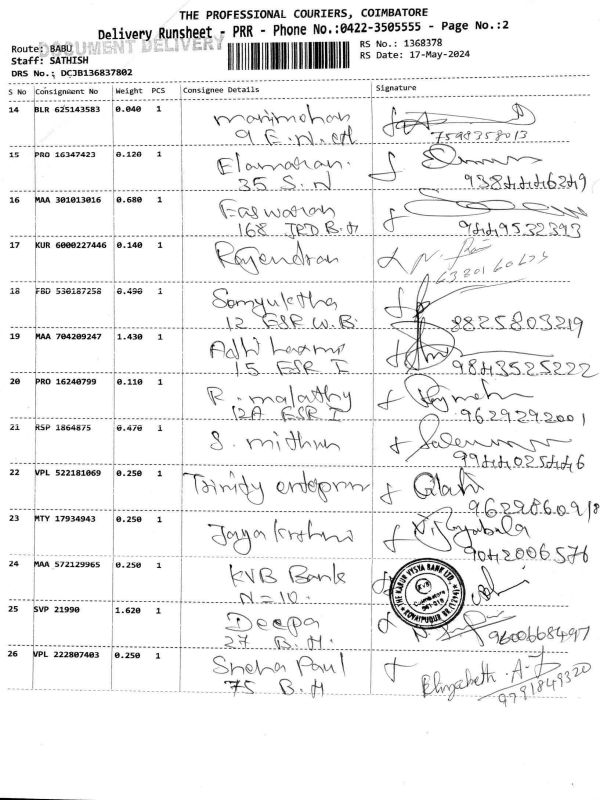 THE PROFESSIONAL COURIERS, COIMBATORE
Delivery Runsheet - PRR - Phone No.:0422-3505555 - Page No.:2
DOCUMENT DELIVERY
Route: BABU
RS No.: 1368378
Staff: SATHISH
RS Date: 17-May-2024
DRS No.: DCJB136837802
S No Consignment No Weight PCS Consignee Details Signature
14 BLR 625143583 0.040 1 manimohan
9 E.N.
7598358013
15 PRO 16347423 0.120 1 Elamaran.
35 S.N
9384446249
16 MAA 301013016 0.680 1 Easwaran
168 JRD B.H
9449532393
17 KUR 6000227446 0.140 1 Rajendran
6320160625
18 FBD 530187258 0.490 1 Samyuktha
12 ESR W.B.
8825803219
19 MAA 704209247 1.430 1 Adhi
15 ESR I
9843525222
20 PRO 16240799 0.110 1 R. malathy
12A ESR I
9629292001
21 RSP 1864875 0.470 1 S. mithun
9944025446
22 VPL 522181069 0.250 1 Trinity
23 MTY 17934943 0.250 1 Jayakrishna
9042006576
24 MAA 572129965 0.250 1 KVB Bank
N=10.
THE KARUR VYSYA BANK LTD.
KVB
Coimbatore
25 SVP 21990 1.620 1 Deepa
27 B.H.
9600668497
26 VPL 222807403 0.250 1 Sneha Paul
75 B.H
Elizabeth. A.J
9791849320